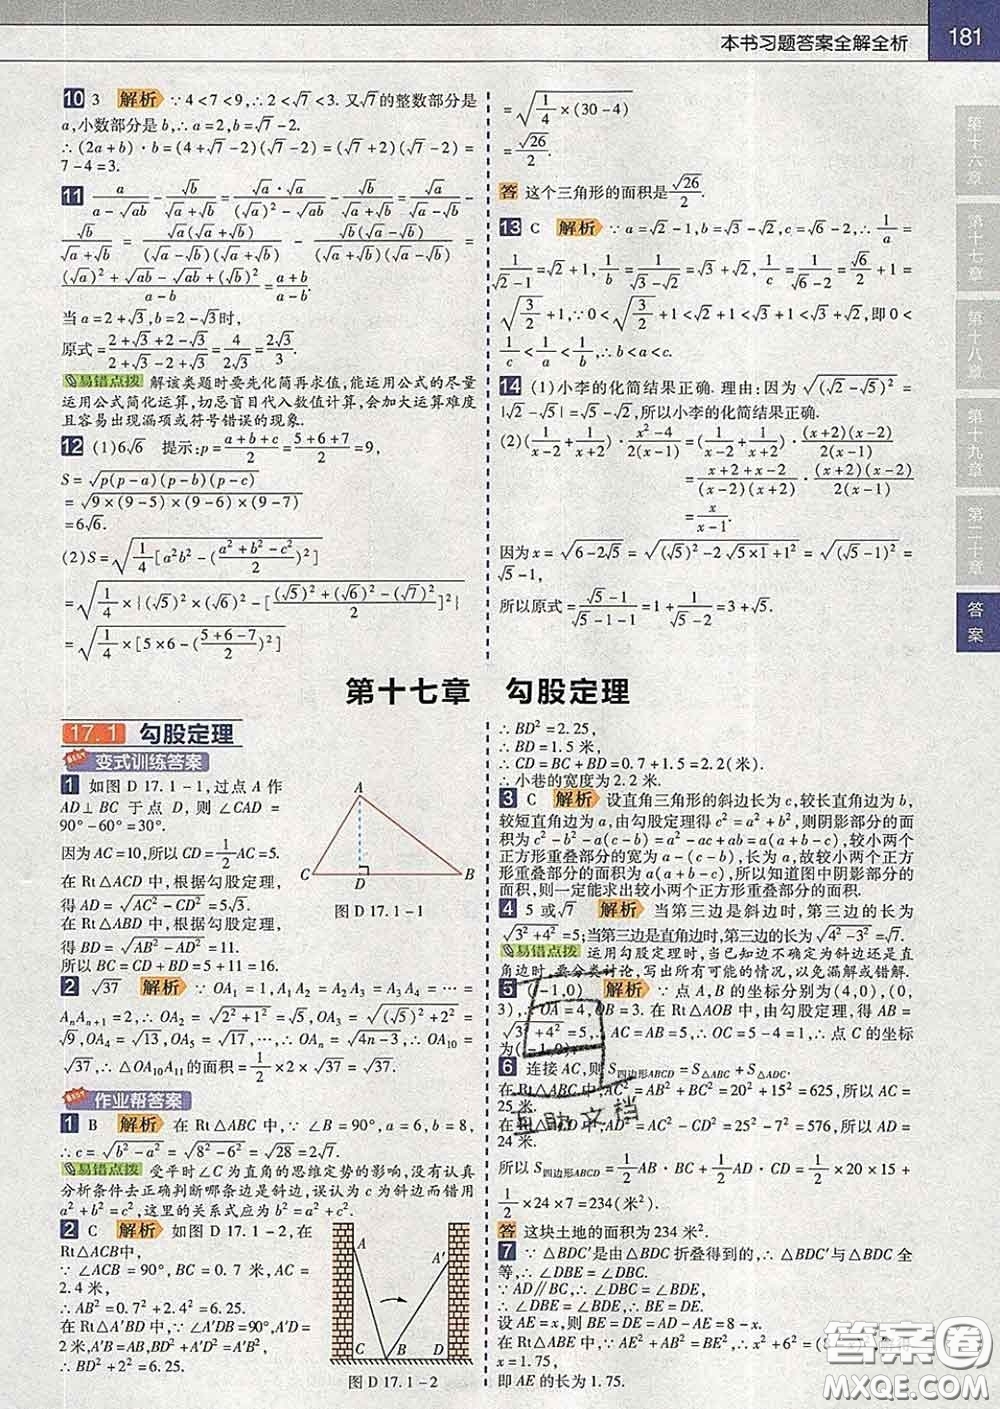 本书习题答案全解全析 181
10 3 解析 ∵4<7<9,∴2<√7<3. 又√7的整数部分是
a,小数部分是b,∴a=2,b=√7-2.
∴(2a+b)·b=(4+√7-2)(√7-2)=(√7+2)(√7-2)=
7-4=3.
11 a/(a-√ab)-√b/(√a+√b)=(√a·√a)/((√a)²-√ab)-√b/(√a+√b)=√a/(√a-√b)-
√b/(√a+√b)=√a(√a+√b)/((√a-√b)(√a+√b))-√b(√a-√b)/((√a-√b)(√a+√b))=
((√a)²+√ab-√ab+(√b)²)/(a-b)=(a+b)/(a-b).
当a=2+√3,b=2-√3时,
原式=(2+√3+2-√3)/(2+√3-2+√3)=4/(2√3)=2√3/3.
易错点拨 解该类题时要先化简再求值,能运用公式的尽量
运用公式简化运算,切忌盲目代入数值计算,会加大运算难度
且容易出现漏项或符号错误的现象.
12 (1)6√6 提示:p=(a+b+c)/2=(5+6+7)/2=9,
S=√(p(p-a)(p-b)(p-c))
=√(9×(9-5)×(9-6)×(9-7))
=6√6.
(2)S=√(1/4[a²b²-((a²+b²-c²)/2)²])
=√(1/4×{(√5)²×(√6)²-[((√5)²+(√6)²-(√7)²)/2]²})
=√(1/4×[5×6-((5+6-7)/2)²])
=√(1/4×(30-4))
=√26/2.
答 这个三角形的面积是√26/2.
13 C 解析 ∵a=√2-1,b=√3-√2,c=√6-2,∴1/a=
1/(√2-1)=√2+1,1/b=1/(√3-√2)=√3+√2,1/c=1/(√6-2)=√6/2+1=
√(3/2)+1.∵0<√(3/2)+1<√2+1<√3+1<√3+√2,即0<
1/c<1/a<1/b,∴b<a<c.
14 (1)小李的化简结果正确. 理由:因为√((√2-√5)²)=
|√2-√5|=√5-√2,所以小李的化简结果正确.
(2)(1/(x-2)+1/(x+2))·(x²-4)/(2(x-1))=(1/(x-2)+1/(x+2))·(x+2)(x-2)/(2(x-1))
=(x+2+x-2)/((x+2)(x-2))·(x+2)(x-2)/(2(x-1))
=x/(x-1).
因为x=√(6-2√5)=√((√5)²-2√(5×1)+1²)=√((√5-1)²)=
√5-1,
所以原式=(√5-1)/(√5-1-1)=1+1/(√5-2)=3+√5.
第十六章
第十七章
第十八章
第十九章
第二十章
答案
第十七章 勾股定理
17.1 勾股定理
变式训练答案
1 如图D17.1-1,过点A作
AD⊥BC于点D,则∠CAD=
90°-60°=30°.
因为AC=10,所以CD=1/2AC=5.
在Rt△ACD中,根据勾股定理,
得AD=√(AC²-CD²)=5√3.
在Rt△ABD中,根据勾股定理,
得BD=√(AB²-AD²)=11.
所以BC=CD+BD=5+11=16.
A
C D B
图D17.1-1
2 √37 解析 ∵OA₁=1,A₁A₂=A₂A₃=A₃A₄=…=
AₙAₙ₊₁=2,∴OA₂=√(2²+1²)=√5,OA₃=√((√5)²+2²)=
√9,OA₄=√13,OA₅=√17,…,∴OAₙ=√(4n-3),∴OA₁₀=
√37,∴△OA₁₀A₁₁的面积=1/2×2×√37=√37.
作业帮答案
1 B 解析 在Rt△ABC中,∵∠B=90°,a=6,b=8,
∴c=√(b²-a²)=√(8²-6²)=√28=2√7.
易错点拨 受平时∠C为直角的思维定势的影响,没有认真
分析条件去正确判断哪条边是斜边,误认为c为斜边而错用
a²+b²=c²,这里的关系式应为b²=a²+c².
2 C 解析 如图D17.1-2,在
Rt△ACB中,
∵∠ACB=90°,BC=0.7米,AC=
2.4米,
∴AB²=0.7²+2.4²=6.25.
在Rt△A'BD中,∵∠A'DB=90°,A'D=
2米,A'B=AB,∴BD²+A'D²=A'B²,
∴BD²+2²=6.25,
A A'
C B D
图D17.1-2
∴BD²=2.25,
∴BD=1.5米,
∴CD=BC+BD=0.7+1.5=2.2(米).
∴小巷的宽度为2.2米.
3 C 解析 设直角三角形的斜边长为c,较长直角边为b,
较短直角边为a,由勾股定理得c²=a²+b²,则阴影部分的面
积为c²-b²-a(c-b)=a²-ac+ab=a(a+b-c),∵较小两个
正方形重叠部分的宽为a-(c-b),长为a,故较小两个正方
形重叠部分的面积为a(a+b-c),所以知道图中阴影部分的
面积,则一定能求出较小两个正方形重叠部分的面积.
4 5或√7 解析 当第三边是斜边时,第三边的长为
√(3²+4²)=5;当第三边是直角边时,第三边的长为√(4²-3²)=√7.
易错点拨 运用勾股定理时,当已知边不确定为斜边还是直
角边时,要分类讨论,写出所有可能的情况,以免漏解或错解.
5 (-1,0) 解析 ∵点A,B的坐标分别为(4,0),(0,
3),∴OA=4,OB=3. 在Rt△AOB中,由勾股定理,得AB=
√(3²+4²)=5,∴AC=AB=5,∴OC=5-4=1,∴点C的坐标
为(-1,0).
6 连接AC,则S四边形ABCD=S△ABC+S△ADC.
在Rt△ABC中,AC²=AB²+BC²=20²+15²=625,所以AC=
25米.
在Rt△ADC中,AD²=AC²-CD²=25²-7²=576,所以AD=
24米.
所以S四边形ABCD=1/2AB·BC+1/2AD·CD=1/2×20×15+
1/2×24×7=234(米²).
答 这块土地的面积为234米².
7 ∵△BDC'是由△BDC折叠得到的,∴△BDC'与△BDC全
等,∴∠DBE=∠DBC.
∵AD∥BC,∴∠EDB=∠DBC,
∴∠DBE=∠EDB,∴BE=DE.
设AE=x,则BE=DE=AD-AE=8-x.
在Rt△ABE中,∵AE²+AB²=BE²,∴x²+6²=
x=1.75,
即AE的长为1.75.
互助文档
答案圈
MXQE.COM